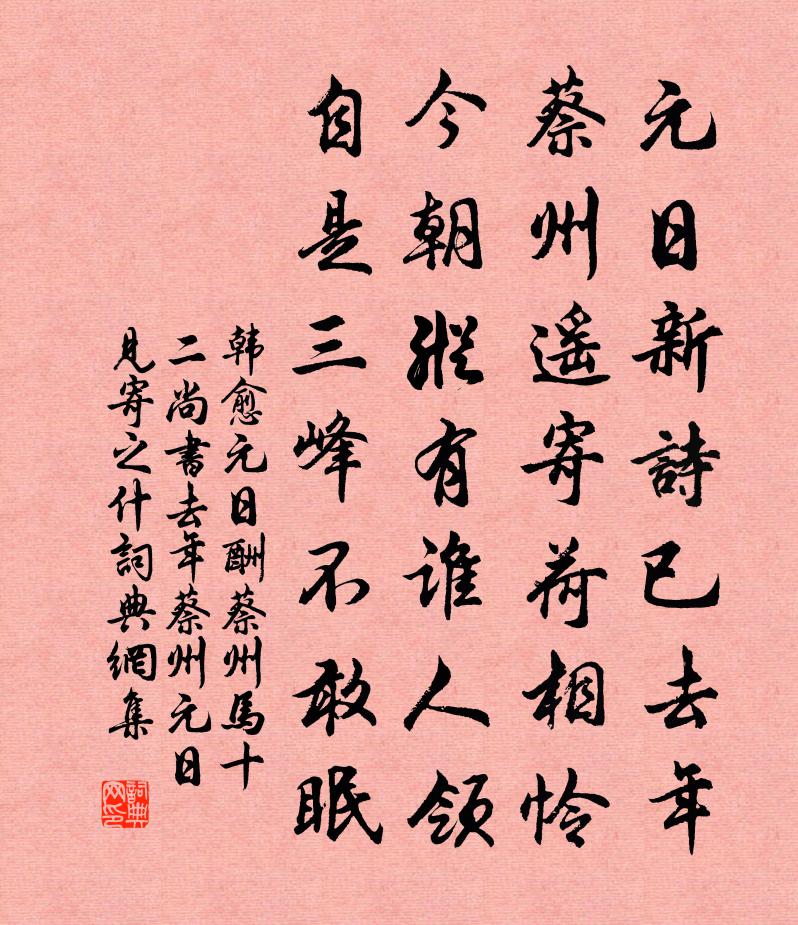 元日新詩已去年
蔡州遥寄荷相怜
今朝縱有誰人領
自是三峰不敢眠
韩愈元日酬蔡州馬十
二尚書去年蔡州元日
見寄之什詞典網集
詞典网印